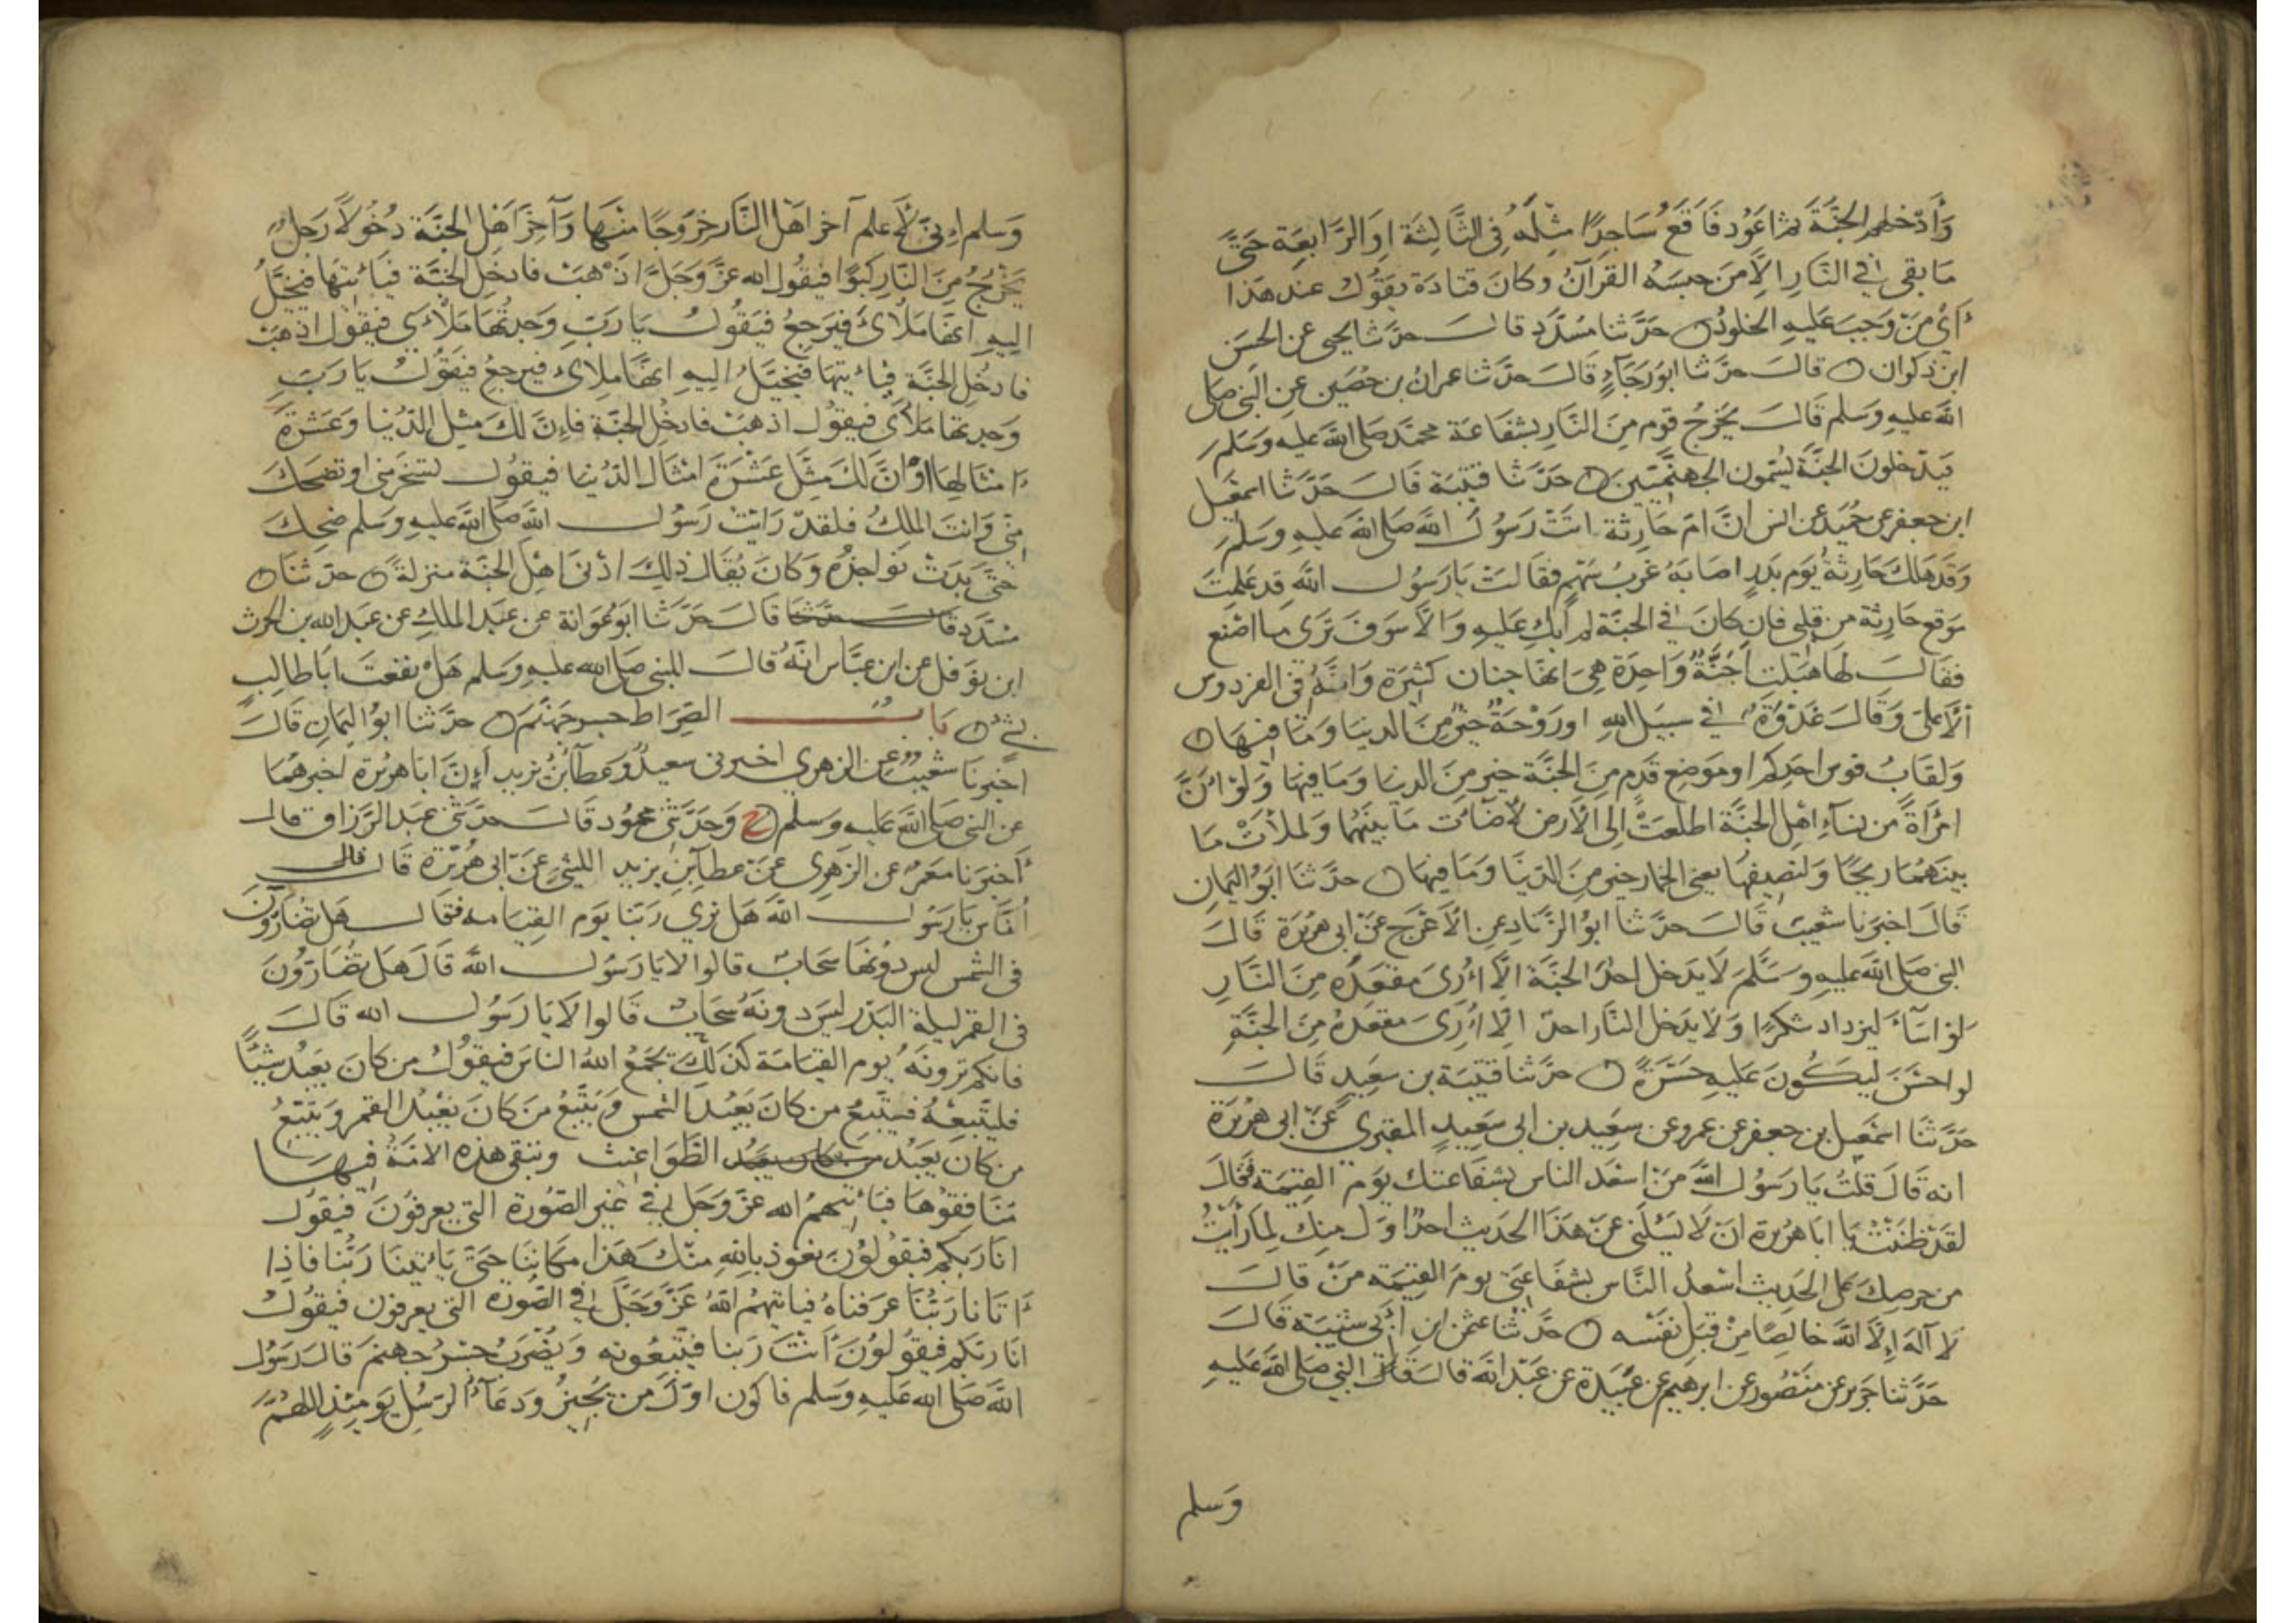 وَأُدْخِلُهُم الجَنَّةَ ثم اعُود فَاَقَعُ سَاجِدًا مثْلَهُ فِى الثَّالِثَة اوِ الرَّابِعَة حَتَّى
مَا بقى في النَّارِ الاَّ مَن حبسَهُ القرآنُ وكانَ قتادَة يَقُولُ عند هذا
أَىْ مَن وَجَبَ عَليهِ الخلودُ حدَّثنا مُسَدَّد قالَ حدَّثنا يحيى عن الحسَن
ابن ذكوان قالَ حدَّثنا ابوُ رَجَآءٍ قَالَ حدَّثنا عمرانُ بن حُصَين عن النَبى صلى
الله عليهِ وَسَلم قَالَ يخرُجُ قوم مِنَ النَّارِ بشفاعَة محمَّد صَلى اللهُ عليه وَسَلم
فيَدخلونَ الجنَّةَ يُسَمّون الجهنَّمِيّينَ حَدَّثَنا قتيبَة قالَ حَدَّثنا اسمعيل
ابن جعفر عن حُمَيد عن انس انَّ امّ حَارثة اتَتْ رَسُولَ اللهِ صَلى الله عليهِ وَسَلم
وَقد هَلك حَارثةُ يوَم بَدرٍ اصَابَهُ غربُ سَهمٍ فقالَتْ يَا رَسُول الله قد عَلِمتَ
مَوقع حَارِثة من قلبى فان كانَ في الجنَّة لم أبكِ عَليهِ وَالاَّ سَوفَ تَرَى مَا اصْنع
فقالَ لهَا هَبِلتِ أَجَنَّةٌ وَاحِدَة هِىَ انهَّا جنان كثيرَة وَانَّهُ في الفردوس
الأعلى وَقالَ غَدْوَةٌ في سبيل اللهِ او رَوْحَةٌ خيرٌ مِنَ الدنيَا وَمَا فيهَا
وَلقَابُ قوس احَدِكم او مَوضع قَدَمٍ مِنَ الجنَّة خير مِنَ الدنيَا وَمَا فيهَا وَلوْ أنَّ
امْرَأةً من نسَآءِ اهْل الجنَّة اطلعَتْ إلى الأرض لأضآءت مَا بينَهُمَا وَلملأتْ مَا
بينَهُمَا ريحًا وَلنَصيفهَا يعنى الخمار خير مِنَ الدّنيَا وَمَا فيهَا حدَّثنا ابوُ اليَمانِ
قَالَ اخبَرنا شعَيبٌ قَالَ حدَّثنا ابوُ الزّنَادِ عن الأعْرَج عَن ابى هرَيرَة قَالَ
النبى صَلى الله عليهِ وَسَلَّم لَا يَدخل احَدٌ الجنَّة الاَّ أُرِىَ مَقعَدَهُ مِنَ النَّارِ
لوْ اسَآءَ ليَزدادَ شكرًا وَلَا يدَخل النَّار احدٌ الاَّ أُرِىَ مَقعَدَهُ مِنَ الجنَّةِ
لو احسَنَ ليكُونَ عَليهِ حَسْرَةً حدَّثنا قتيبَة بن سعِيدٍ قَالَ
حَدَّثنا اسمَعيل بن جعفر عن عمرو عن سعِيد بن ابى سَعِيدٍ المقبرى عَن ابى هرَيرَة
انه قَالَ قلتُ يَا رَسُول اللهِ مَن اسْعَد الناس بشفاعتك يَوم القيمَة فقالَ
لقدْ ظننتُ يَا ابَا هرَيرة انْ لَا يَسْئَلنى عَن هَذا الحَديث احدٌ اوّل منك لِمَا رأيتُ
من حرصِكَ على الحَديث اسْعدُ النَّاس بشفَاعتى يومَ القيمَة منْ قالَ
لَا آلهَ إلاَّ اللهُ خَالِصًا مِن قِبَلِ نَفْسه حدَّثنا عثمن ابن أبى شيبَة قالَ
حَدَّثنا جَرير عن مَنصُور عن ابرهيم عن عَبيدَة عن عَبد الله قالَ قالَ النبي صَلى الله عَليهِ
وَسلم
وَسلم إِنى لَأَعلم آخر اهْل النَّار خرُوجًا منهَا وَآخِرَ اهْل الجَنَّة دُخُولاً رَجلٌ
يَخْرُجُ مِنَ النَّارِ كَبوًا فيقُول الله عزّ وَجَلّ اذْهَبْ فادخُل الجنَّة فيَأتيهَا فيخيَّلُ
اليهِ انهَّا مَلأى فيَرجعُ فيَقُولُ يَا رَبّ وَجدتُهَا مَلأَى فيقول اذهَبْ
فادخُل الجنَّة فيأتيهَا فيخيَّلُ اليهِ انهَّا مَلأى فيرجعُ فيقُولُ يَا رَبّ
وَجدتها مَلأَى فيقُول اذهَبْ فادخُل الجنَّة فإنَّ لكَ مثِل الدُّنيا وَعَشرَة
أمثالهَا اوْ انَّ لكَ مِثلَ عَشرَة امثال الدّنيَا فيقُول تسخر منى او تضحَك
منّى وَانتَ الملِكُ فلقدْ رَايتُ رَسُول الله صَلى الله عَليهِ وَسلم ضحِكَ
حَتَّى بدَتْ نواجذُه وَكانَ يُقالُ ذلِكَ ادْنى اهْل الجنَّة مَنزلةً حدّثنا
مسَدّد قالَ حدّثنا قَالَ حدَّثنا ابوُ عَوَانة عن عَبد الملكِ عن عَبد الله بن الحرث
ابن نوفل عن ابن عبَّاس انَّهُ قالَ للنبى صَلى الله عليهِ وَسلم هَلْ نفعتَ ابَا طالبٍ
بشئ بَابٌ الصّراط جسر جهَنَّم حدَّثنا ابوُ اليمَان قَالَ
اخبرنا شعَيبٌ عن الزهرى اخبرنى سعيدٌ وَعطآءُ بنُ يزيد أنَّ ابا هريْرة اخبرهُما
عن النبى صَلى الله عليهِ وَسلم ح وَحدّثنى محمُود قَالَ حدّثنى عَبد الرَّزاق قالَ
أَخبرنا مَعمَرٌ عن الزهرى عَن عطآءِ بن يزيد الليثى عَن ابى هرَيْرَة قَالَ قالَ
أُنَاس يا رَسُول اللهِ هَل نرى رَبّنا يَوم القيَامه فقالَ هَل تُضارُّونَ
فى الشمس ليس دُونهَا سَحابٌ قالوا لا يَا رَسُول اللهِ قَالَ هَل تضَارّونَ
فى القمر ليلة البدْر ليسَ دونهُ سَحابٌ قالوا لا يَا رَسُول الله قَالَ
فانكم ترَونهُ يوم القيَامَة كذَلكَ يجمَعُ اللهُ الناسَ فيقُولُ من كانَ يعَبُد شيئًا
فليتّبعهُ فيتّبعُ من كانَ يَعَبُد الشمس وَيتّبعُ مَن كانَ يَعْبدُ القمر وَيتّبعُ
من كانَ يعَبُد من كان يعبد الطّوَاغيت وتبقى هذِه الأمّة فيهَا
مُنَافِقُوهَا فيَأتيهمُ الله عَزّ وَجَل فى غير الصُّورة التى يعرفُونَ فيقُول
انَا رَبكم فيقُولُونَ نعُوذ باللهِ منْكَ هَذا مكانُنا حَتَّى يَأتينَا رَبُّنَا فاذا
أَتَانا رَبُّنَا عَرفناهُ فيَاتيهمُ اللهُ عَزَّ وَجَلّ فى الصُّورة التى يعرفون فيقُولُ
انَا رَبكم فيقُولُونَ أَنتَ رَبنا فيتّبعُونه وَيُضرَبُ جسرُ جهنم قالَ رَسُول
الله صَلى الله عليهِ وَسلم فاكون اوّلَ من يُجيزُ وَدعَآءُ الرسُل يَومَئِذٍ اللهُمَّ